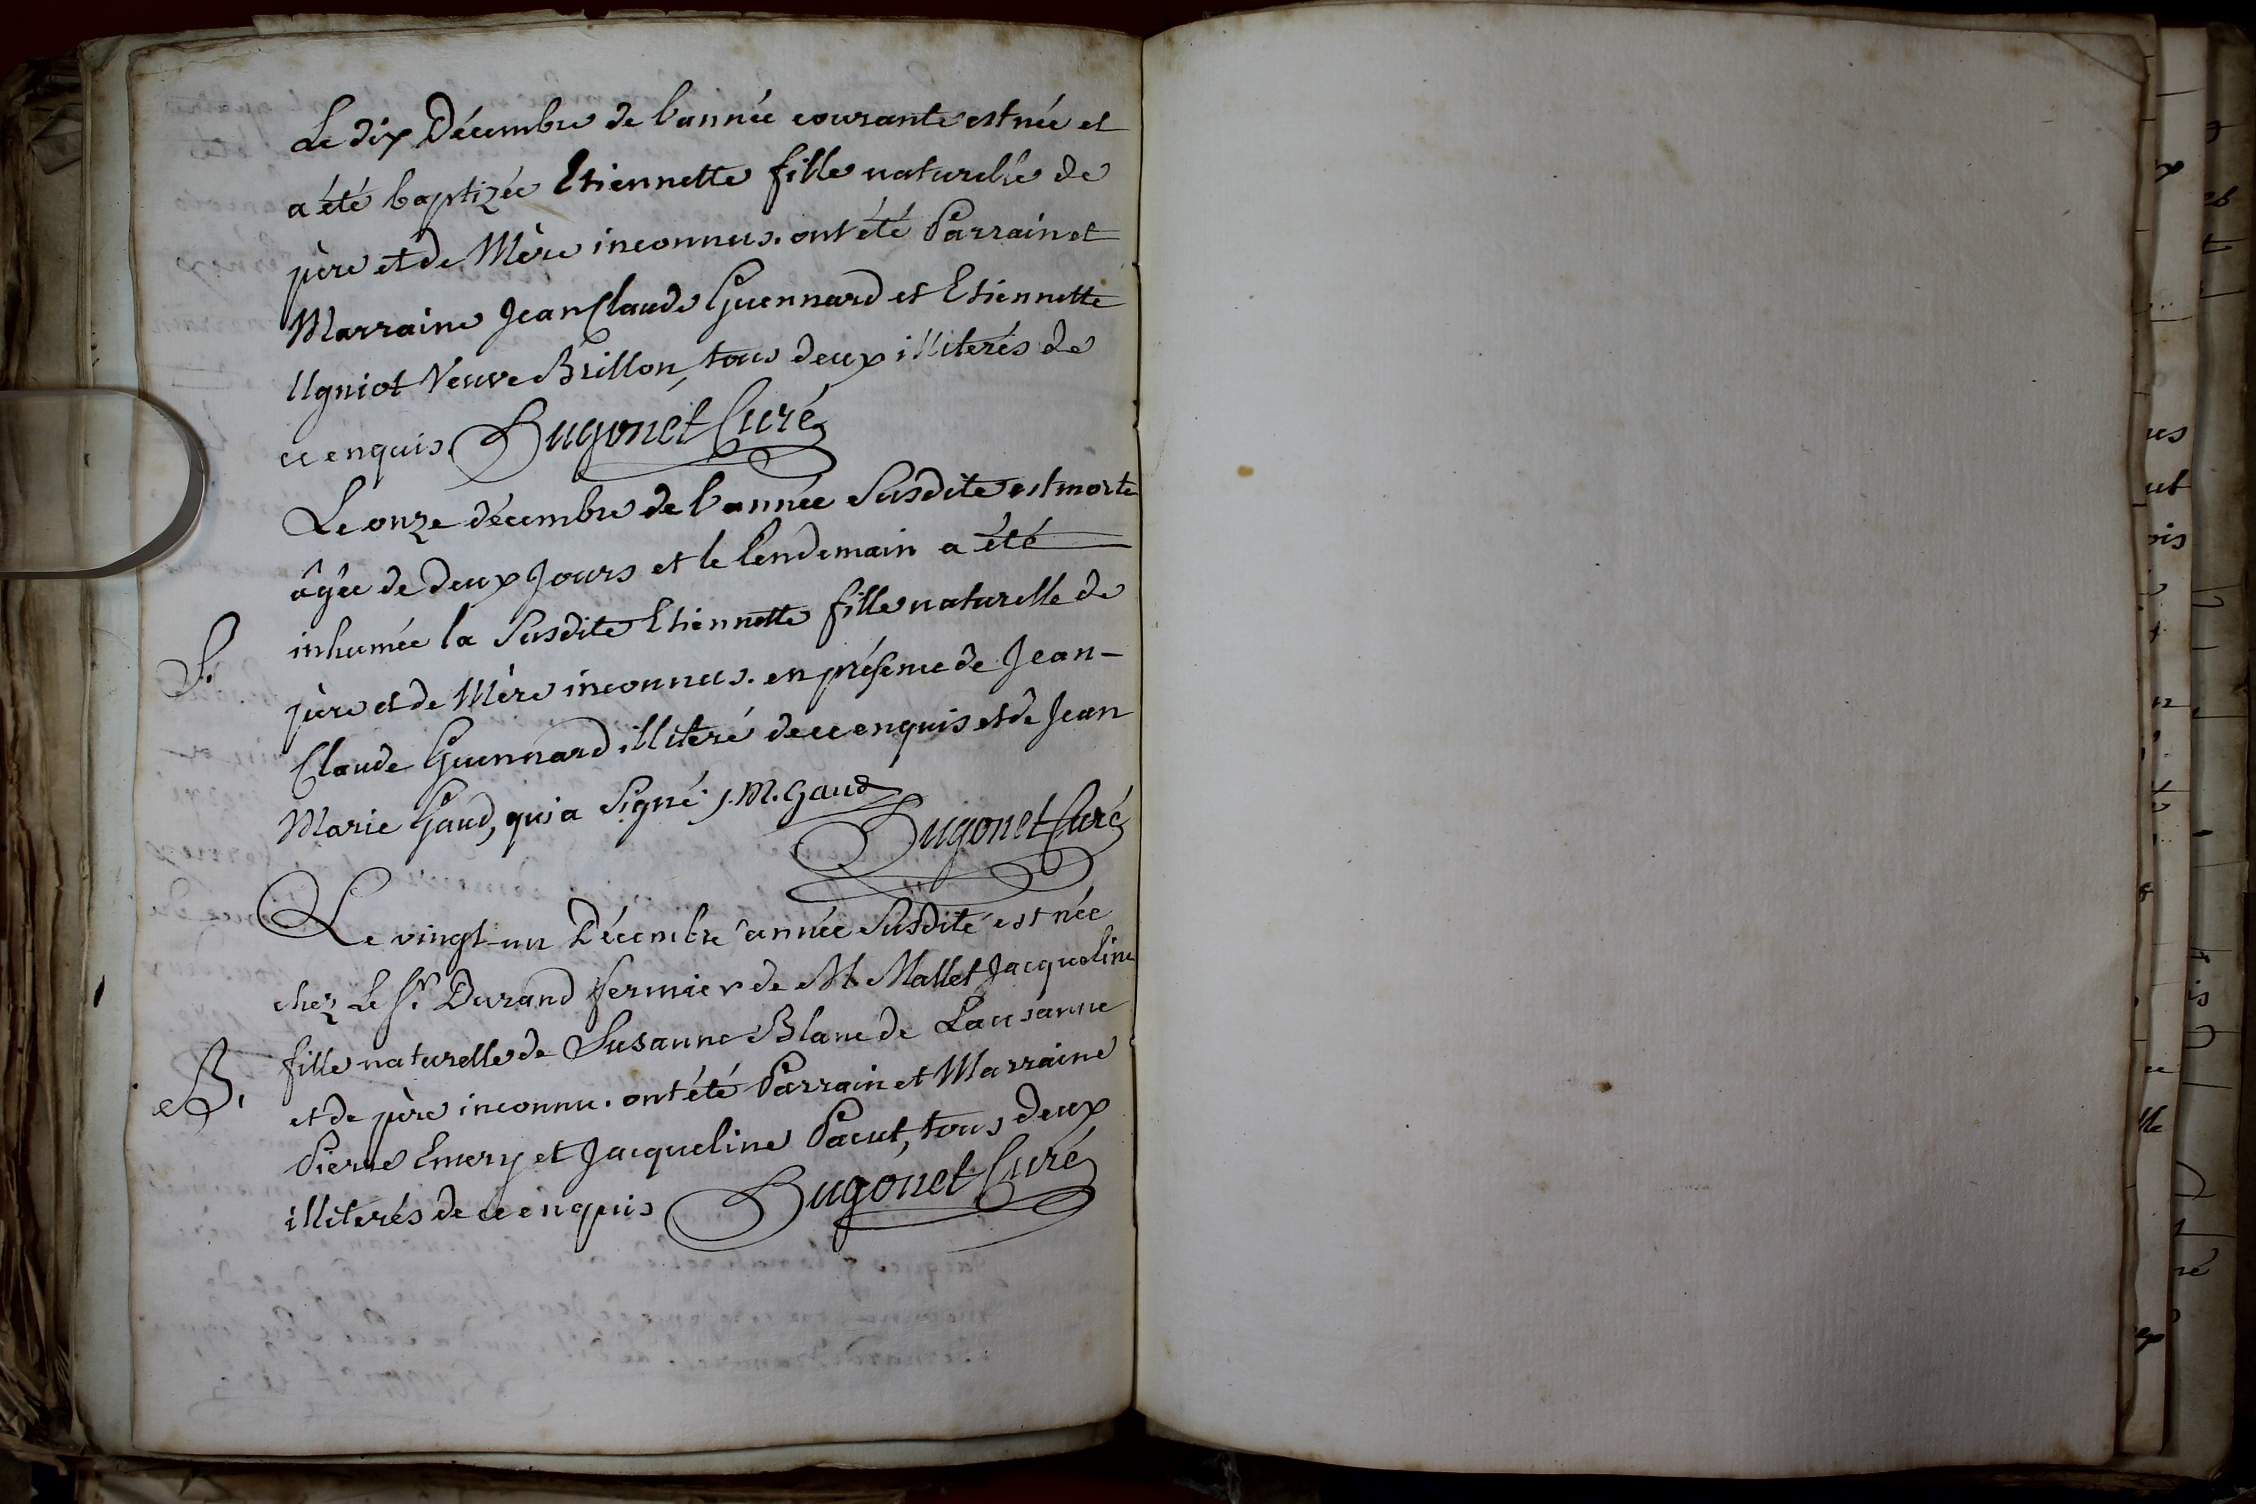 Le dix Décembre de l'année courante est née et
a été baptizée Etiennette fille naturelle de
père et de Mère inconnus. ont été Parrain et
Marraine Jean Claude Guennard et Etiennette
Ugniot Veuve Brillon, tous deux illiterés de
ce enquis. Hugonet Curé
Le onze décembre de l'année Susdite est morte
âgée de deux Jours et le lendemain a été
inhumée la Susdite Etiennette fille naturelle de
S.
père et de Mère inconnus. en présence de Jean-
Claude Guennard illiteré de ce enquis et de Jean
Marie Gaud, qui a Signé J. M. Gaud
Hugonet Curé
Le vingt-un Décembre année Susdite est née
chez Le Sr. Durand fermier de M. Mallet Jacqueline
fille naturelle de Susanne Blanc de Lausanne
B.
et de père inconnu. ont été Parrain et Marraine
Pierre Emery et Jacqueline Pacut, tous deux
illiterés de ce enquis Hugonet Curé